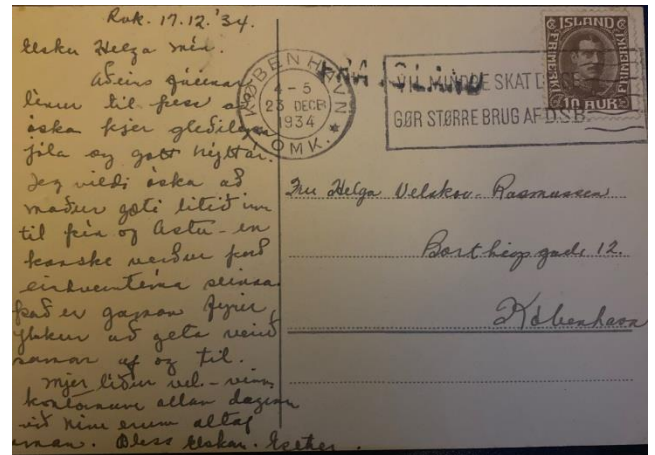 Rvk. 17.12.'34.
Elsku Helga mín.
Aðeins fáeinar
línur til þess að
óska þjer gleðilegra
jóla og gott nýttár.
Jeg vildi óska að
maður gæti litið inn
til þín og Ástu - en
kanske verður það
einhverntíma seinna
það er gaman fyrir
ykkur að geta verið
saman af og til.
Mjer líður vel. - vinn
kontórnum allan daginn
við Nine erum altaf
saman. Bless elskan. Esther.
KØBENHAVN
4-5
23 DECBR
1934
OMK.
FRA ISLAND
VIL MINDRE SKAT
GØR STØRRE BRUG AF D.S.B.
ISLAND
FRIMERKI
FRIMERKI
10 AUR
Fru Helga Velskov-Rasmussen
gade 12.
København